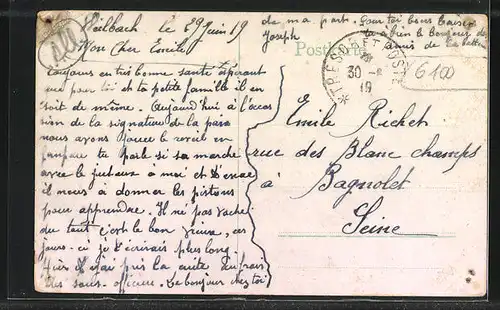 Heilbach le 29 Juin 19
Mon Cher Emile
toujours en très bonne santé espérant
que pour toi et ta petite famille il en
soit de même. Aujourd'hui à l'occa
sion de la signature de la paix
nous avons joué le réveil en
fanfare te parle si sa marche
avec le putaux a moi et
il nous à donner les pistons
pour apprendre. Il ne pas vache
du tout c'est le bon ces
jours-ci je t'écrirais plus long
Hier il mai pris la cuite
des sous-officier. Le bonjour chez toi
de ma part. Pour toi bons baisers
Joseph
à bien le bonjour de
amis de la
Postkarte
TRESOR ET POSTES
30 - 6
19
6100
Emile Richet
rue des Blanc champs
à Bagnolet
Seine